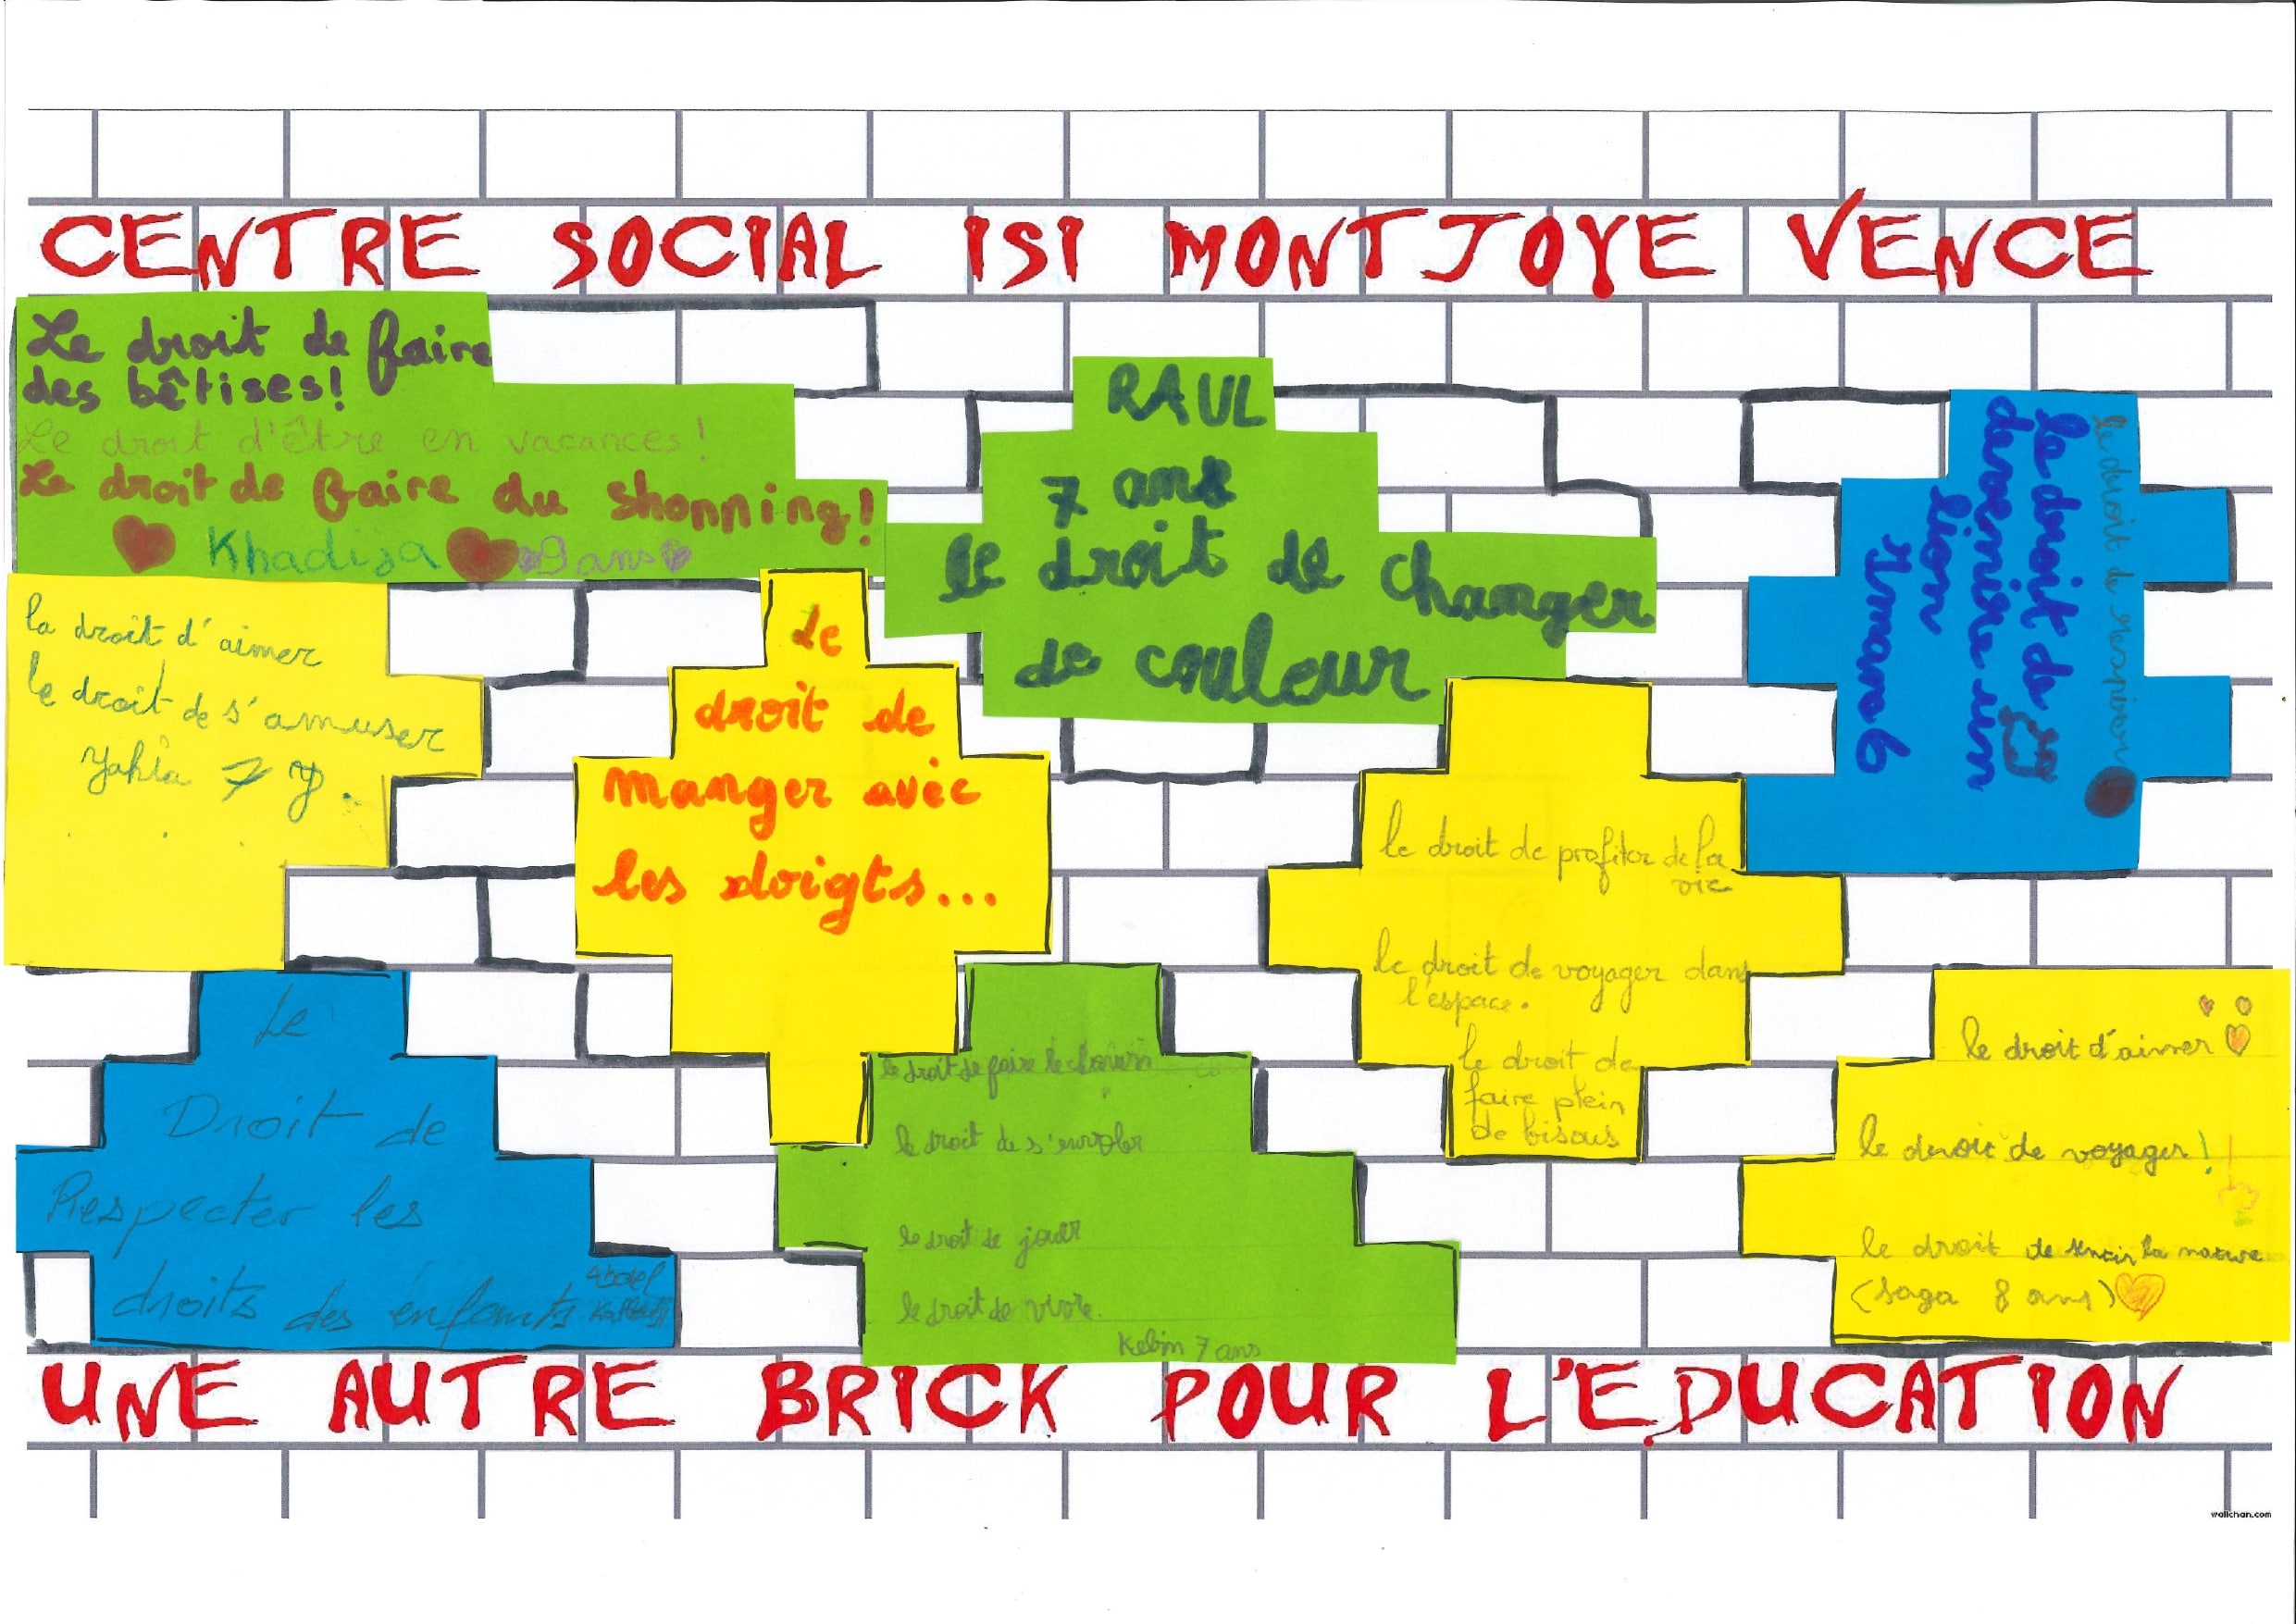 CENTRE SOCIAL ISI MONTJOYE VENCE
Le droit de faire
des bêtises!
Le droit d'être en vacances!
Le droit de faire du shopping!
Khadija 9 ans
RAUL
7 ans
le droit de changer
de couleur
le droit de respirer
le droit de
devenir un
lion
la droit d'aimer
le droit de s'amuser
Yahia 7
Le
droit de
manger avec
les doigts...
le droit de profiter de la
vie
le droit de voyager dans
l'espace.
le droit de
faire plein
de bisous
Le
Droit de
Respecter les
droits des enfants
le droit de faire le
le droit de s'envoler
le droit de jouer
le droit de vivre.
Kebin 7 ans
le droit d'aimer
le droit de voyager!
le droit de sentir la nature
(saga 8 ans)
UNE AUTRE BRICK POUR L'EDUCATION
wallchan.com